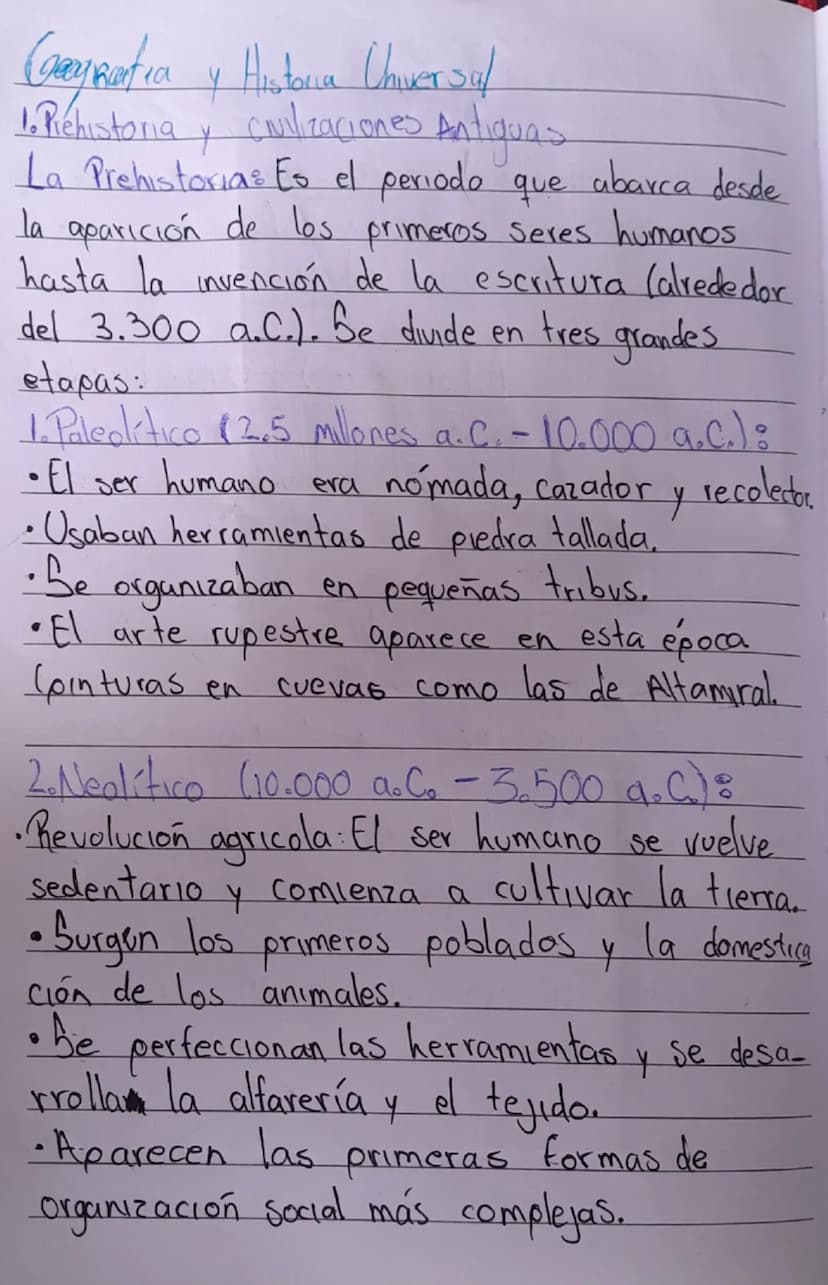 Geografia y Historia Universal
1. Prehistoria y civilizaciones Antiguas
La Prehistoria: Es el periodo que abarca desde
la aparición de los primeros seres humanos
hasta la invención de la escritura (alrededor
del 3.300 a.C.). Se divide en tres grandes
etapas:
1. Paleolítico (2.5 millones a.C. - 10.000 a.C.):
• El ser humano era nómada, cazador y recolector.
• Usaban herramientas de piedra tallada.
• Se organizaban en pequeñas tribus.
• El arte rupestre aparece en esta época
(pinturas en cuevas como las de Altamira).
2. Neolítico (10.000 a.C. - 3.500 a.C.):
• Revolución agricola: El ser humano se vuelve
sedentario y comienza a cultivar la tierra.
• Surgen los primeros poblados y la domestica
ción de los animales.
• Se perfeccionan las herramientas y se desa-
rrolla la alfarería y el tejido.
• Aparecen las primeras formas de
organización social más complejas.